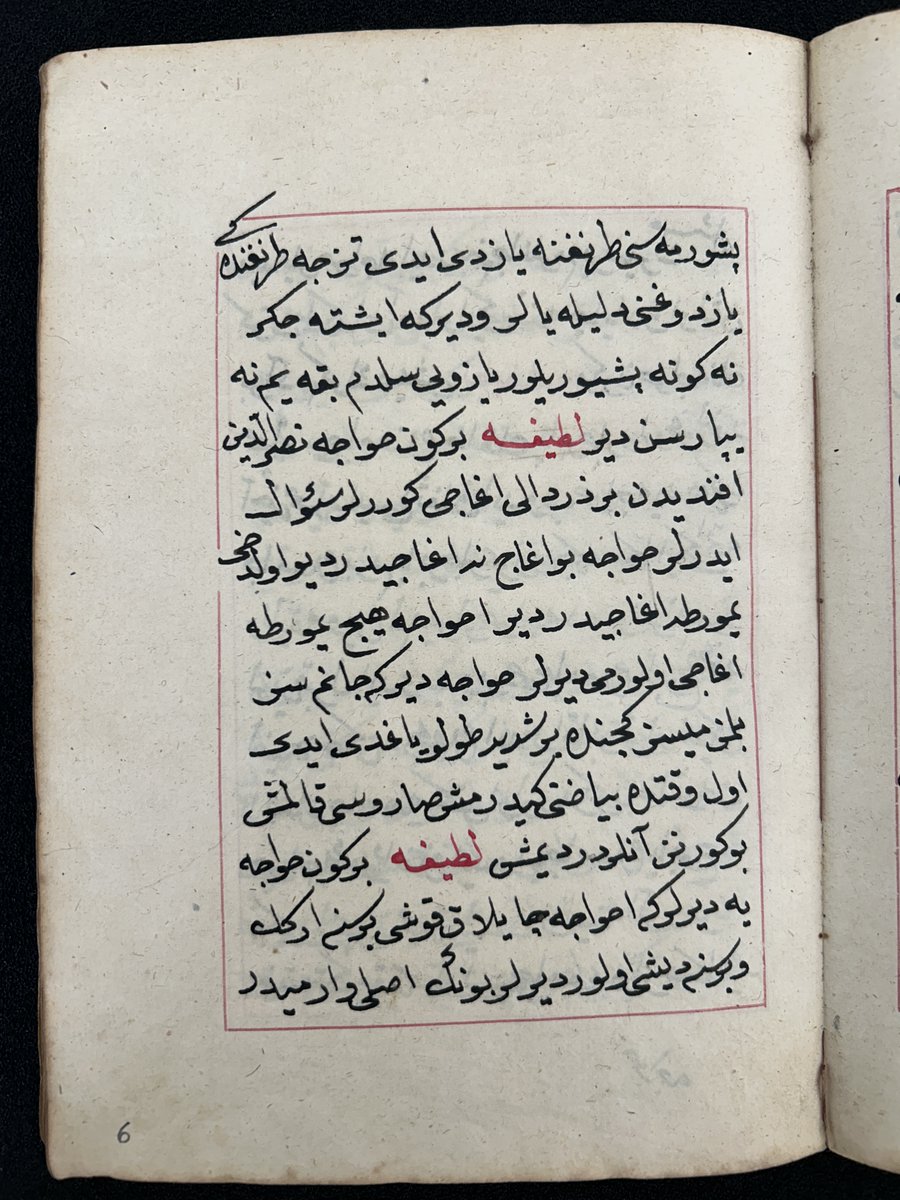 پشورمه سنی طرنغنه یازدی ایدی تزجه طرنغنده کی
یازدوغنی دلیله یالر ودیرکه ایشته جکر
نه کونه پشیوریلور یازویی سلدم بقه یم نه
یپارسن دیر لطیفه برکون حواجه نصرالدین
افندیدن برذردالی اغاجی کوررلر سؤال
ایدرلر حواجه بواغاج نه اغاجیدر دیو اولدخی
یمورطه اغاجیدر دیر احواجه هیچ یمورطه
اغاجی اولورمی دیرلر حواجه دیرکه جانم سز
بلمزمیسز کجنده برشدید طولو یاغدی ایدی
اول وقتده بیاضی کیدرمش صاروسی قالمش
بوکورنن آنلردر دیمش لطیفه برکون حواجه
یه دیرلرکه احواجه چایلاق قوشی برسنه ارکك
وبرسنه دیشی اولور دیرلر بونڭ اصلی وارمیدر
6